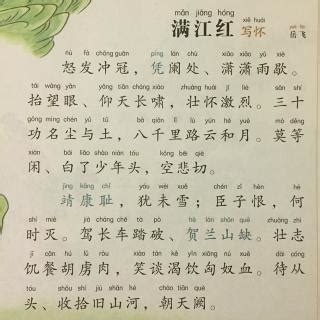 mǎn jiāng hóng xiě huái yuè fēi
满江红 写怀 岳飞
nù fà chōng guān píng lán chù xiāo xiāo yǔ xiē
怒发冲冠，凭阑处、潇潇雨歇。
tái wàng yǎn yǎng tiān cháng xiào zhuàng huái jī liè sān shí
抬望眼、仰天长啸，壮怀激烈。三十
gōng míng chén yǔ tǔ bā qiān lǐ lù yún hé yuè mò děng
功名尘与土，八千里路云和月。莫等
xián bái liǎo shào nián tóu kōng bēi qiè
闲、白了少年头，空悲切。
jìng kāng chǐ yóu wèi xuě chén zǐ hèn hé
靖康耻，犹未雪；臣子恨，何
shí miè jià cháng chē tà pò hè lán shān quē zhuàng zhì
时灭。驾长车踏破、贺兰山缺。壮志
jī cān hú lǔ ròu xiào tán kě yǐn xiōng nú xuè dài cóng
饥餐胡虏肉，笑谈渴饮匈奴血。待从
tóu shōu shí jiù shān hé cháo tiān què
头、收拾旧山河，朝天阙。